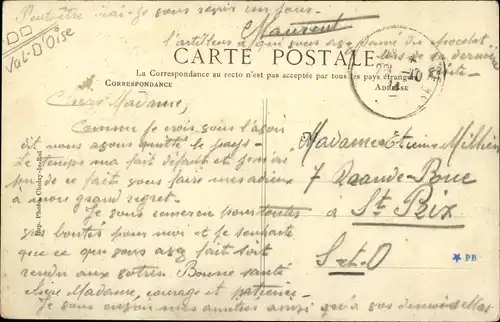 Peut-être irai-je vous revoir un jour.
Maurent
l'artilleur à qui vous avez donné du chocolat
lors de la dernière
Val-D'Oise
CARTE POSTALE
La Correspondance au recto n'est pas acceptée par tous les pays étrangers
CORRESPONDANCE
ADRESSE
Chère Madame,
Comme je crois vous l'avoir
dit nous avons quitté le pays.
Le temps m'a fait défaut et je n'ai
pu de ce fait vous faire mes adieux
à mon grand regret.
Je vous remercie pour toutes
vos bontés pour moi et je souhaite
que ce que vous avez fait soit
rendu aux vôtres. Bonne santé
chère Madame, courage et patience.
Je vous envoie mes amitiés ainsi qu'à vos
Madame Etienne
7 Grande Rue
à St Prix
S-et-O
PB
Imp. Photo. Choisy-le-Roi